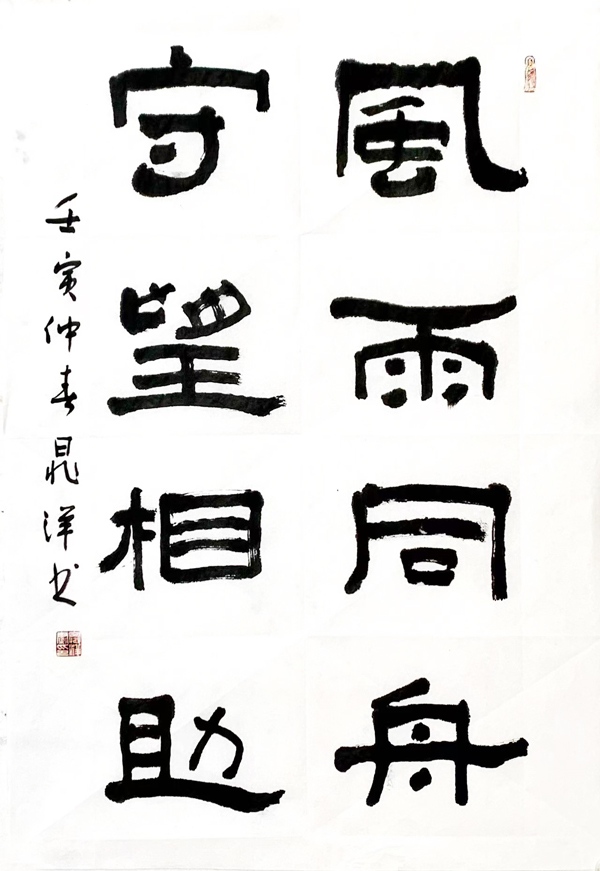 風雨同舟
守望相助
壬寅仲春晁洋书